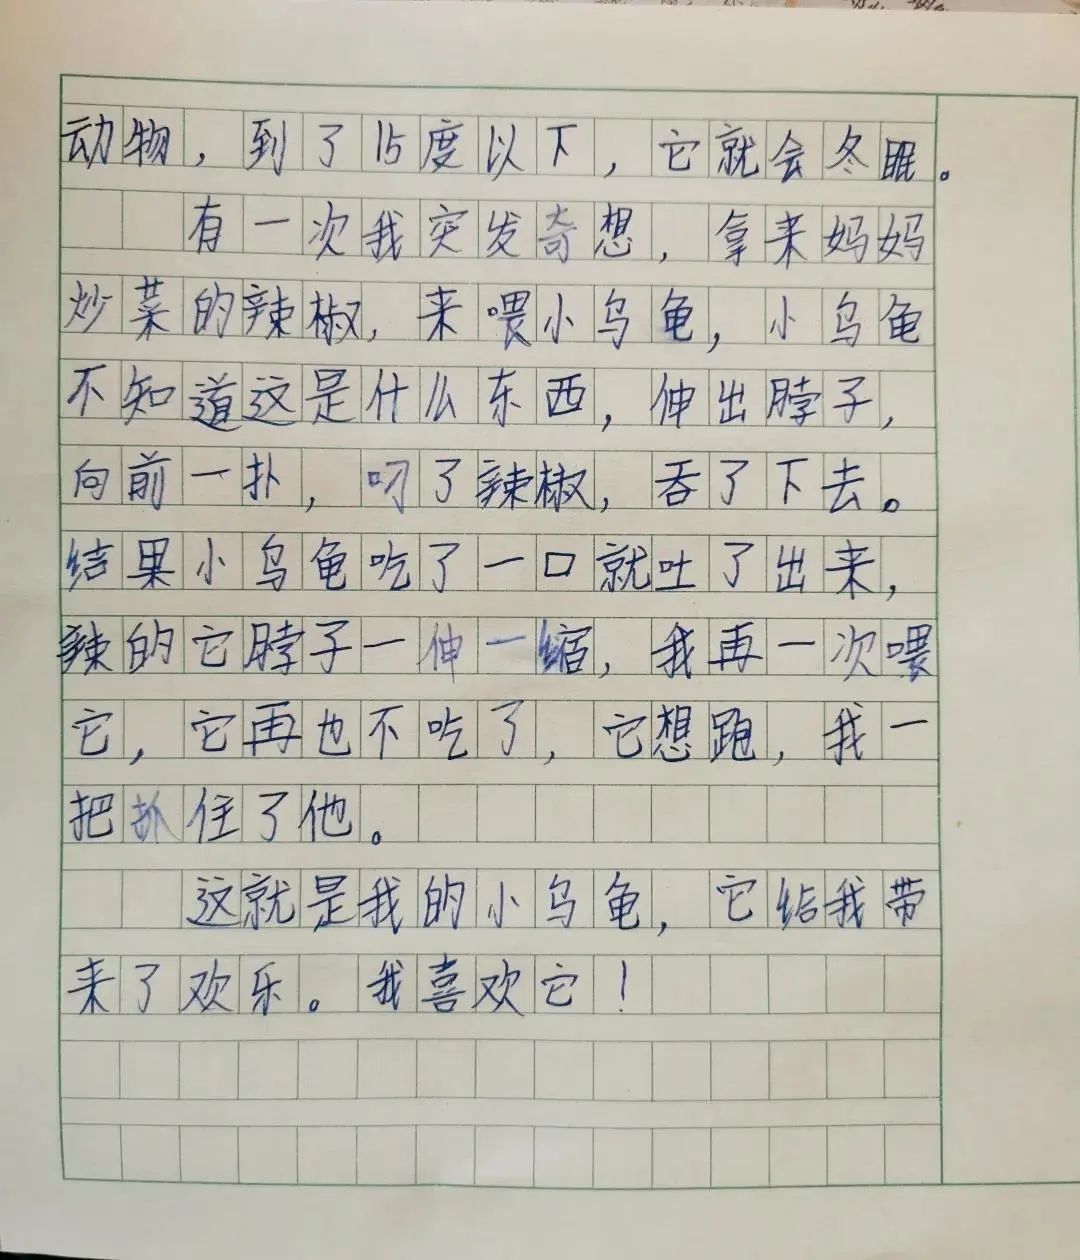 动物，到了15度以下，它就会冬眠。
有一次我突发奇想，拿来妈妈
炒菜的辣椒，来喂小乌龟，小乌龟
不知道这是什么东西，伸出脖子，
向前一扑，叼了辣椒，吞了下去。
结果小乌龟吃了一口就吐了出来，
辣的它脖子一伸一缩，我再一次喂
它，它再也不吃了，它想跑，我一
把抓住了他。
这就是我的小乌龟，它给我带
来了欢乐。我喜欢它！